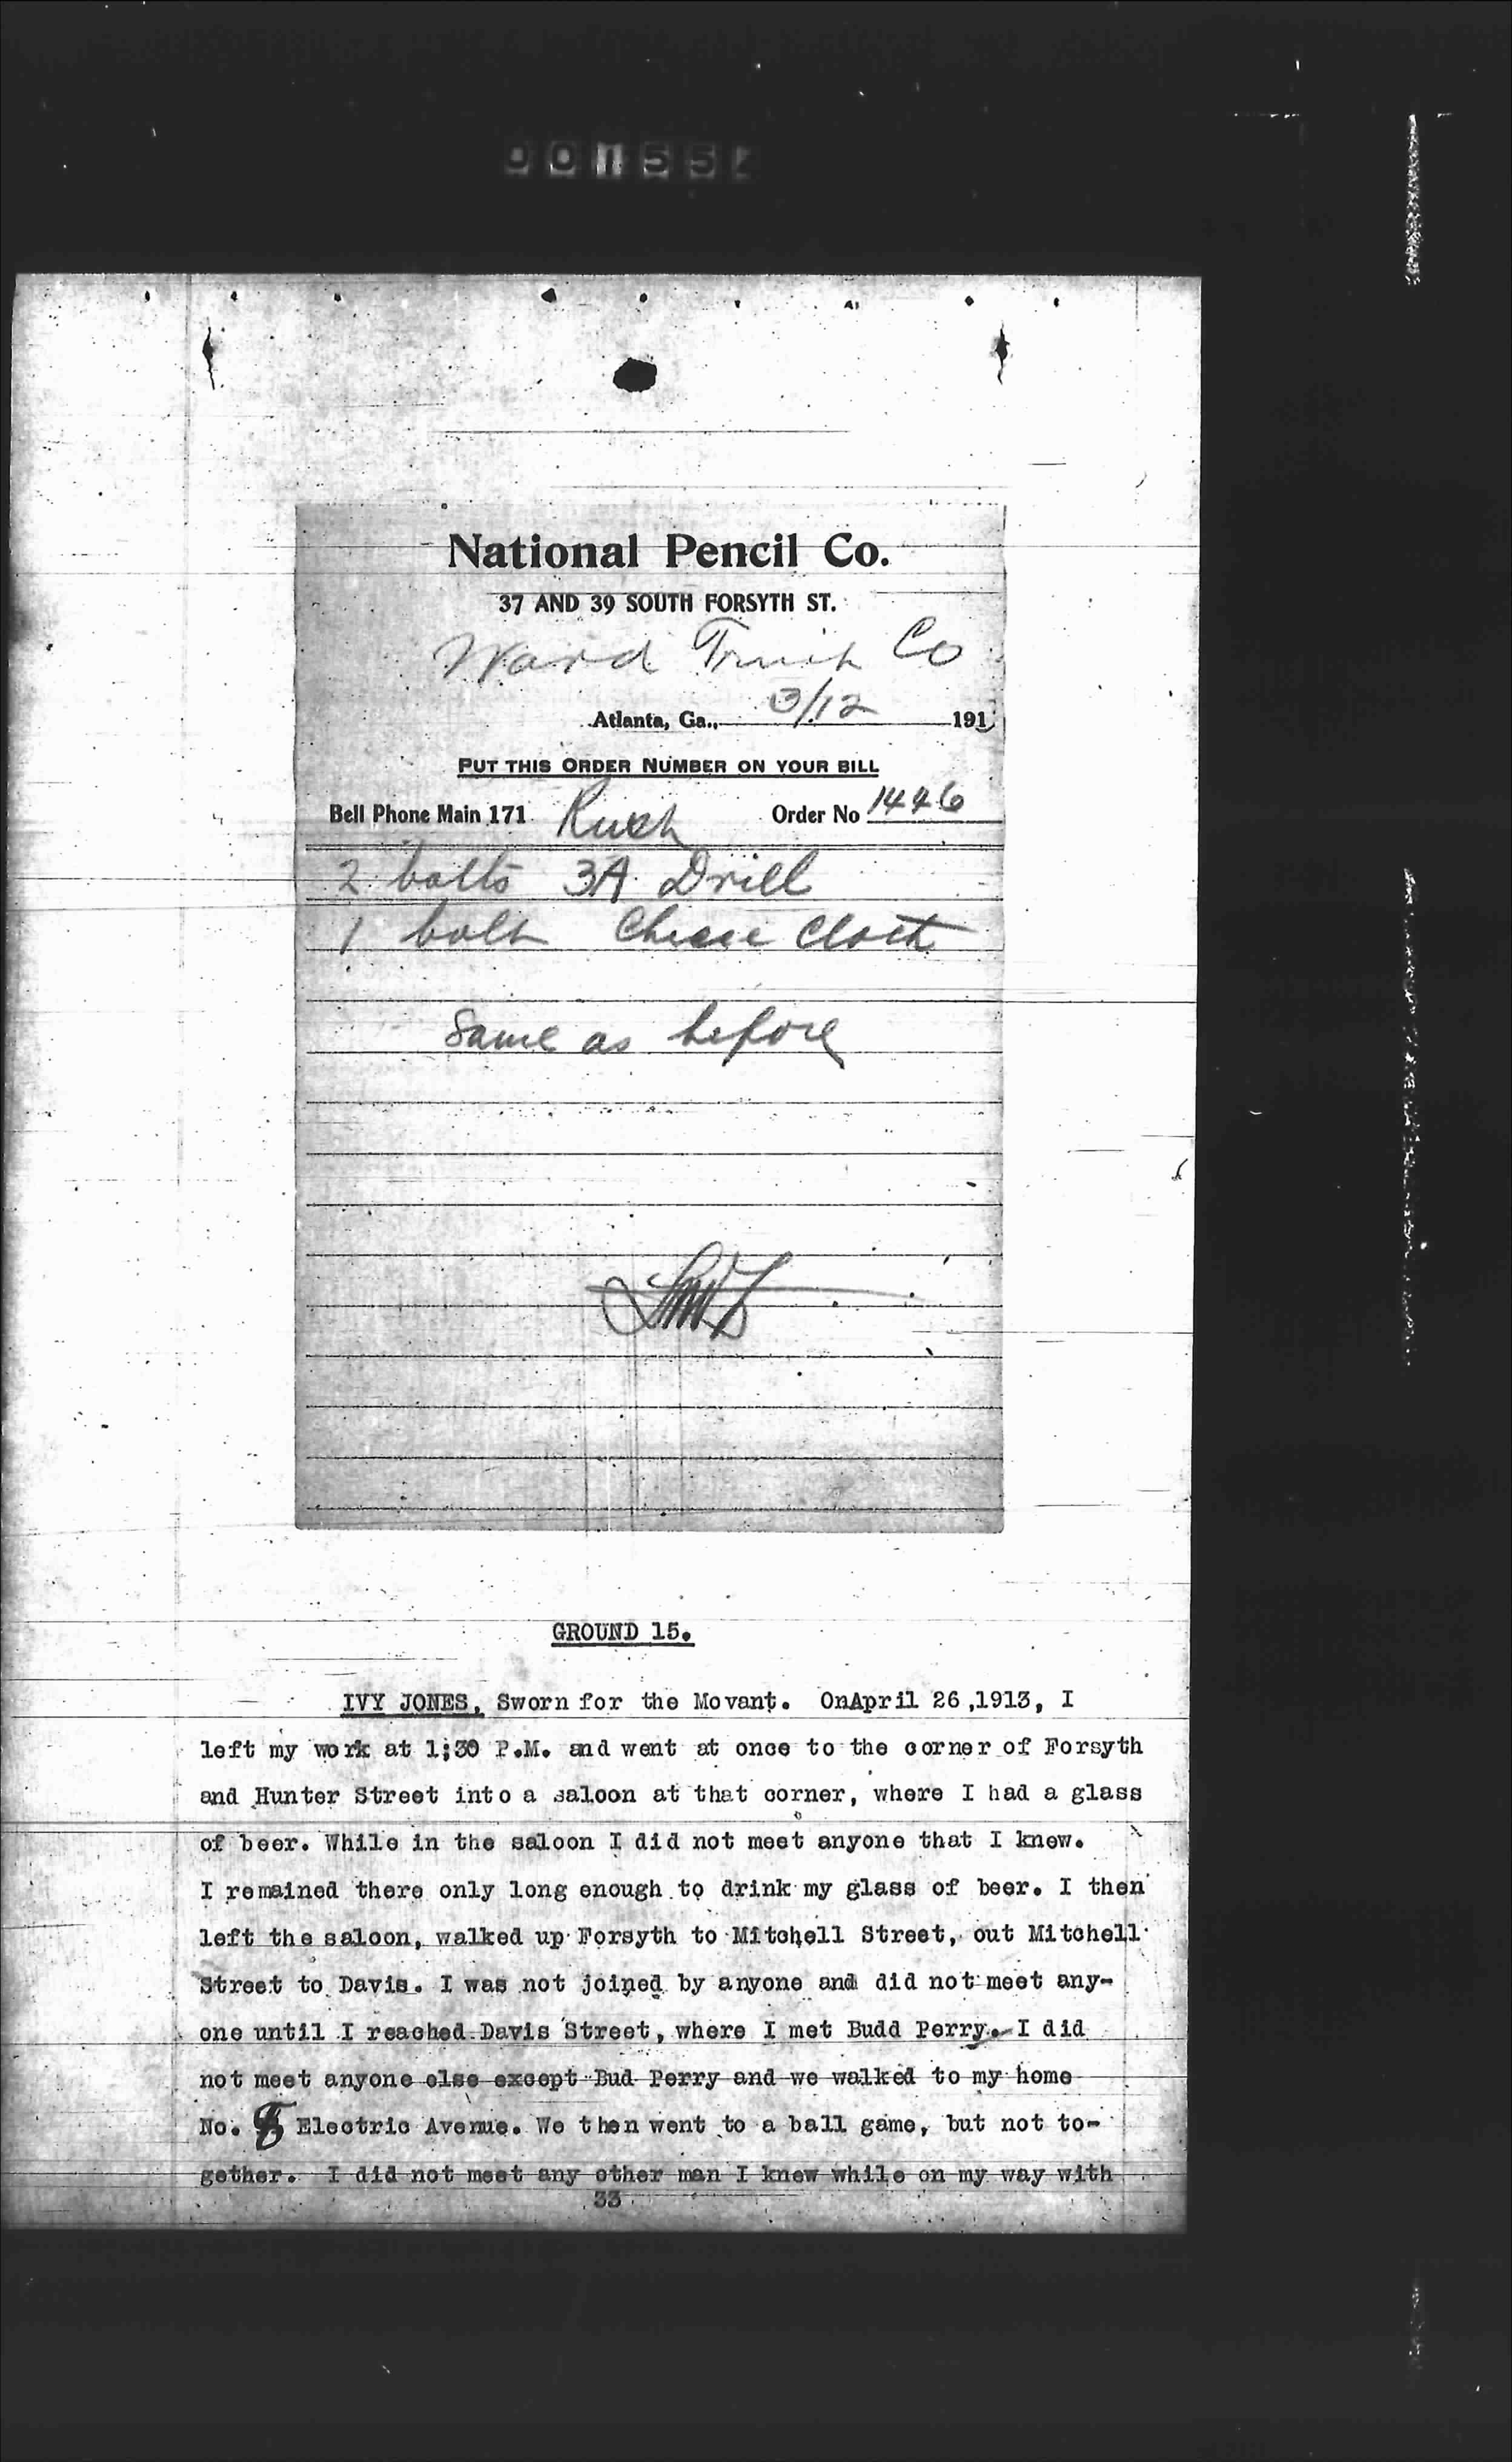 National Pencil Co.
37 AND 39 SOUTH FORSYTH ST.
Ward Truitt Co
Atlanta, Ga., 3/12 191
PUT THIS ORDER NUMBER ON YOUR BILL
Bell Phone Main 171 Rush Order No 1446
2 bolts 3A Drill
1 bolt Cheese Cloth
Same as before
GROUND 15.
IVY JONES, Sworn for the Movant. OnApril 26,1913, I
left my work at 1;30 P.M. and went at once to the corner of Forsyth
and Hunter Street into a saloon at that corner, where I had a glass
of beer. While in the saloon I did not meet anyone that I knew.
I remained there only long enough to drink my glass of beer. I then
left the saloon, walked up Forsyth to Mitchell Street, out Mitchell
Street to Davis. I was not joined by anyone and did not meet any-
one until I reached Davis Street, where I met Budd Perry. I did
not meet anyone else except Bud Perry and we walked to my home
No. Electric Avenue. We then went to a ball game, but not to-
gether. I did not meet any other man I knew while on my way with
33